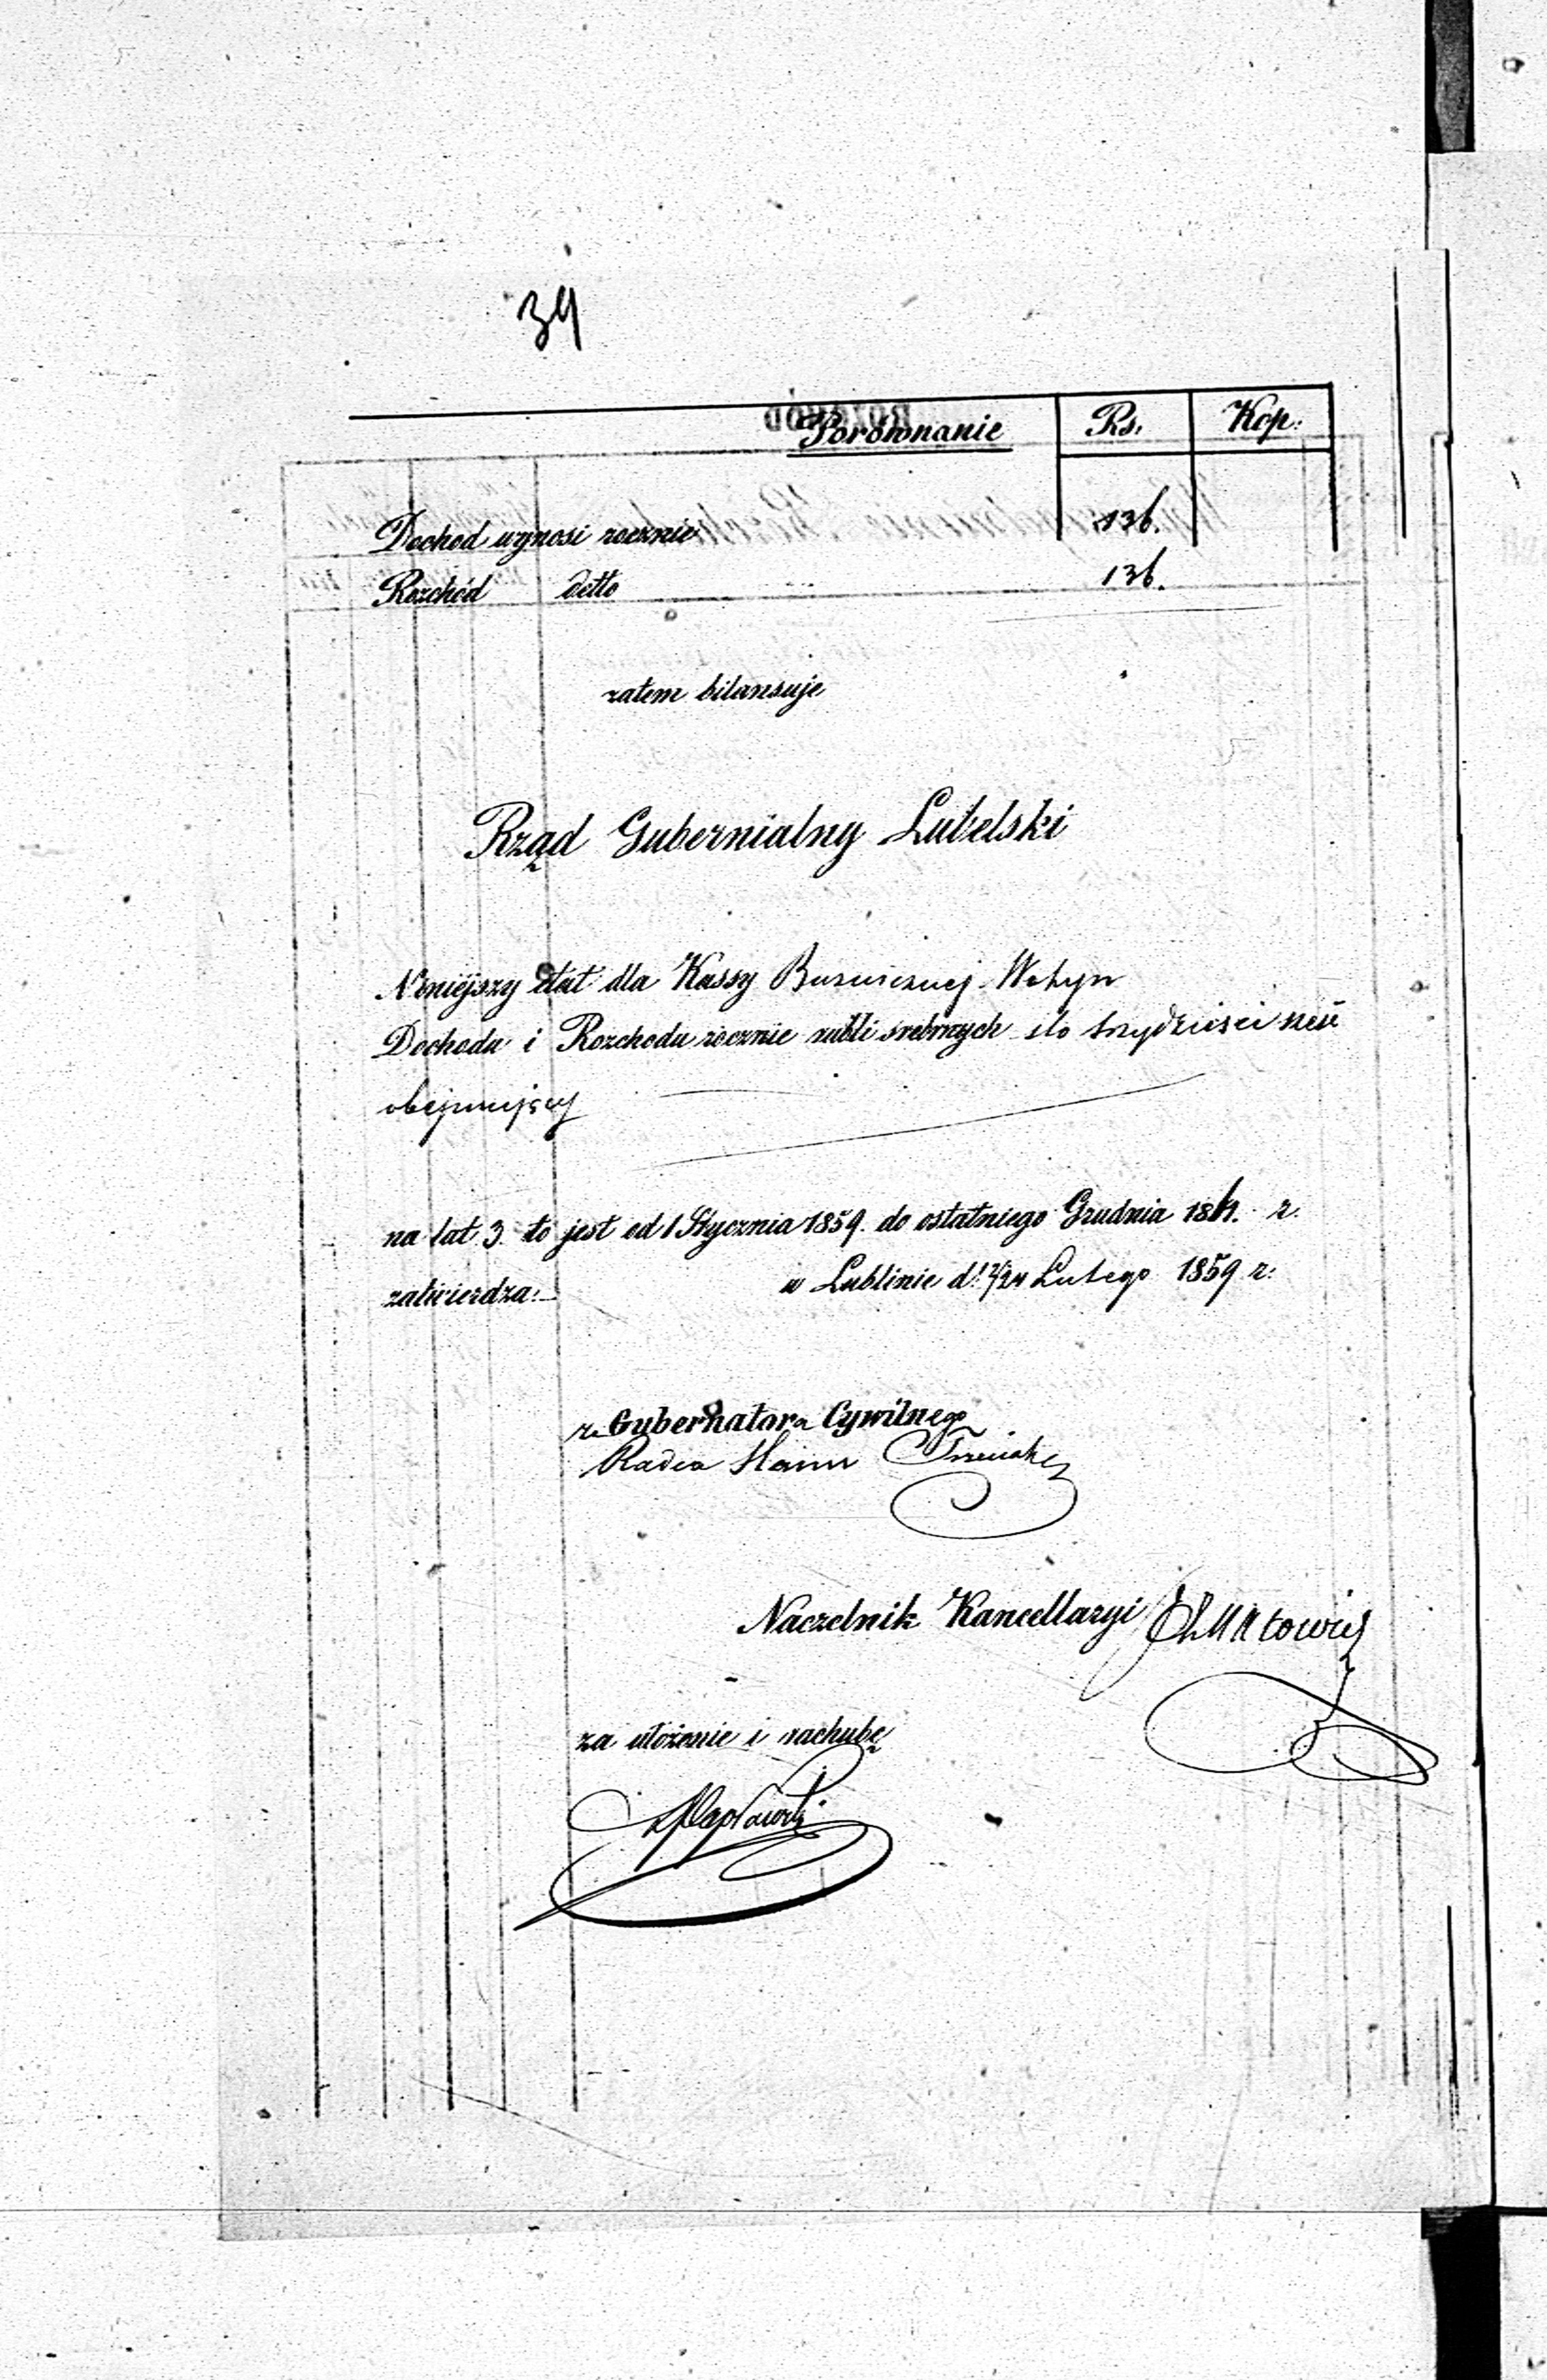 34
Porównanie Rs. Kop:
Dochod wynosi rocznie 136.
Rozchód detto 136.
zatem bilansuje
Rząd Gubernialny Lubelski
Niniejszy etat dla Kassy Bóżnicznej Wohyn
Dochodu i Rozchodu rocznie rubli srebrnych sto trzydzieści sześć
obejmujący
na lat 3 to jest od 1 Stycznia 1859. do ostatniego Grudnia r.
zatwierdza. w Lublinie d. 12/24 Lutego 1859 r.
z. Gubernatora Cywilnego
Radca Stanu
Naczelnik Kancellaryi
za ułożenie i rachubę